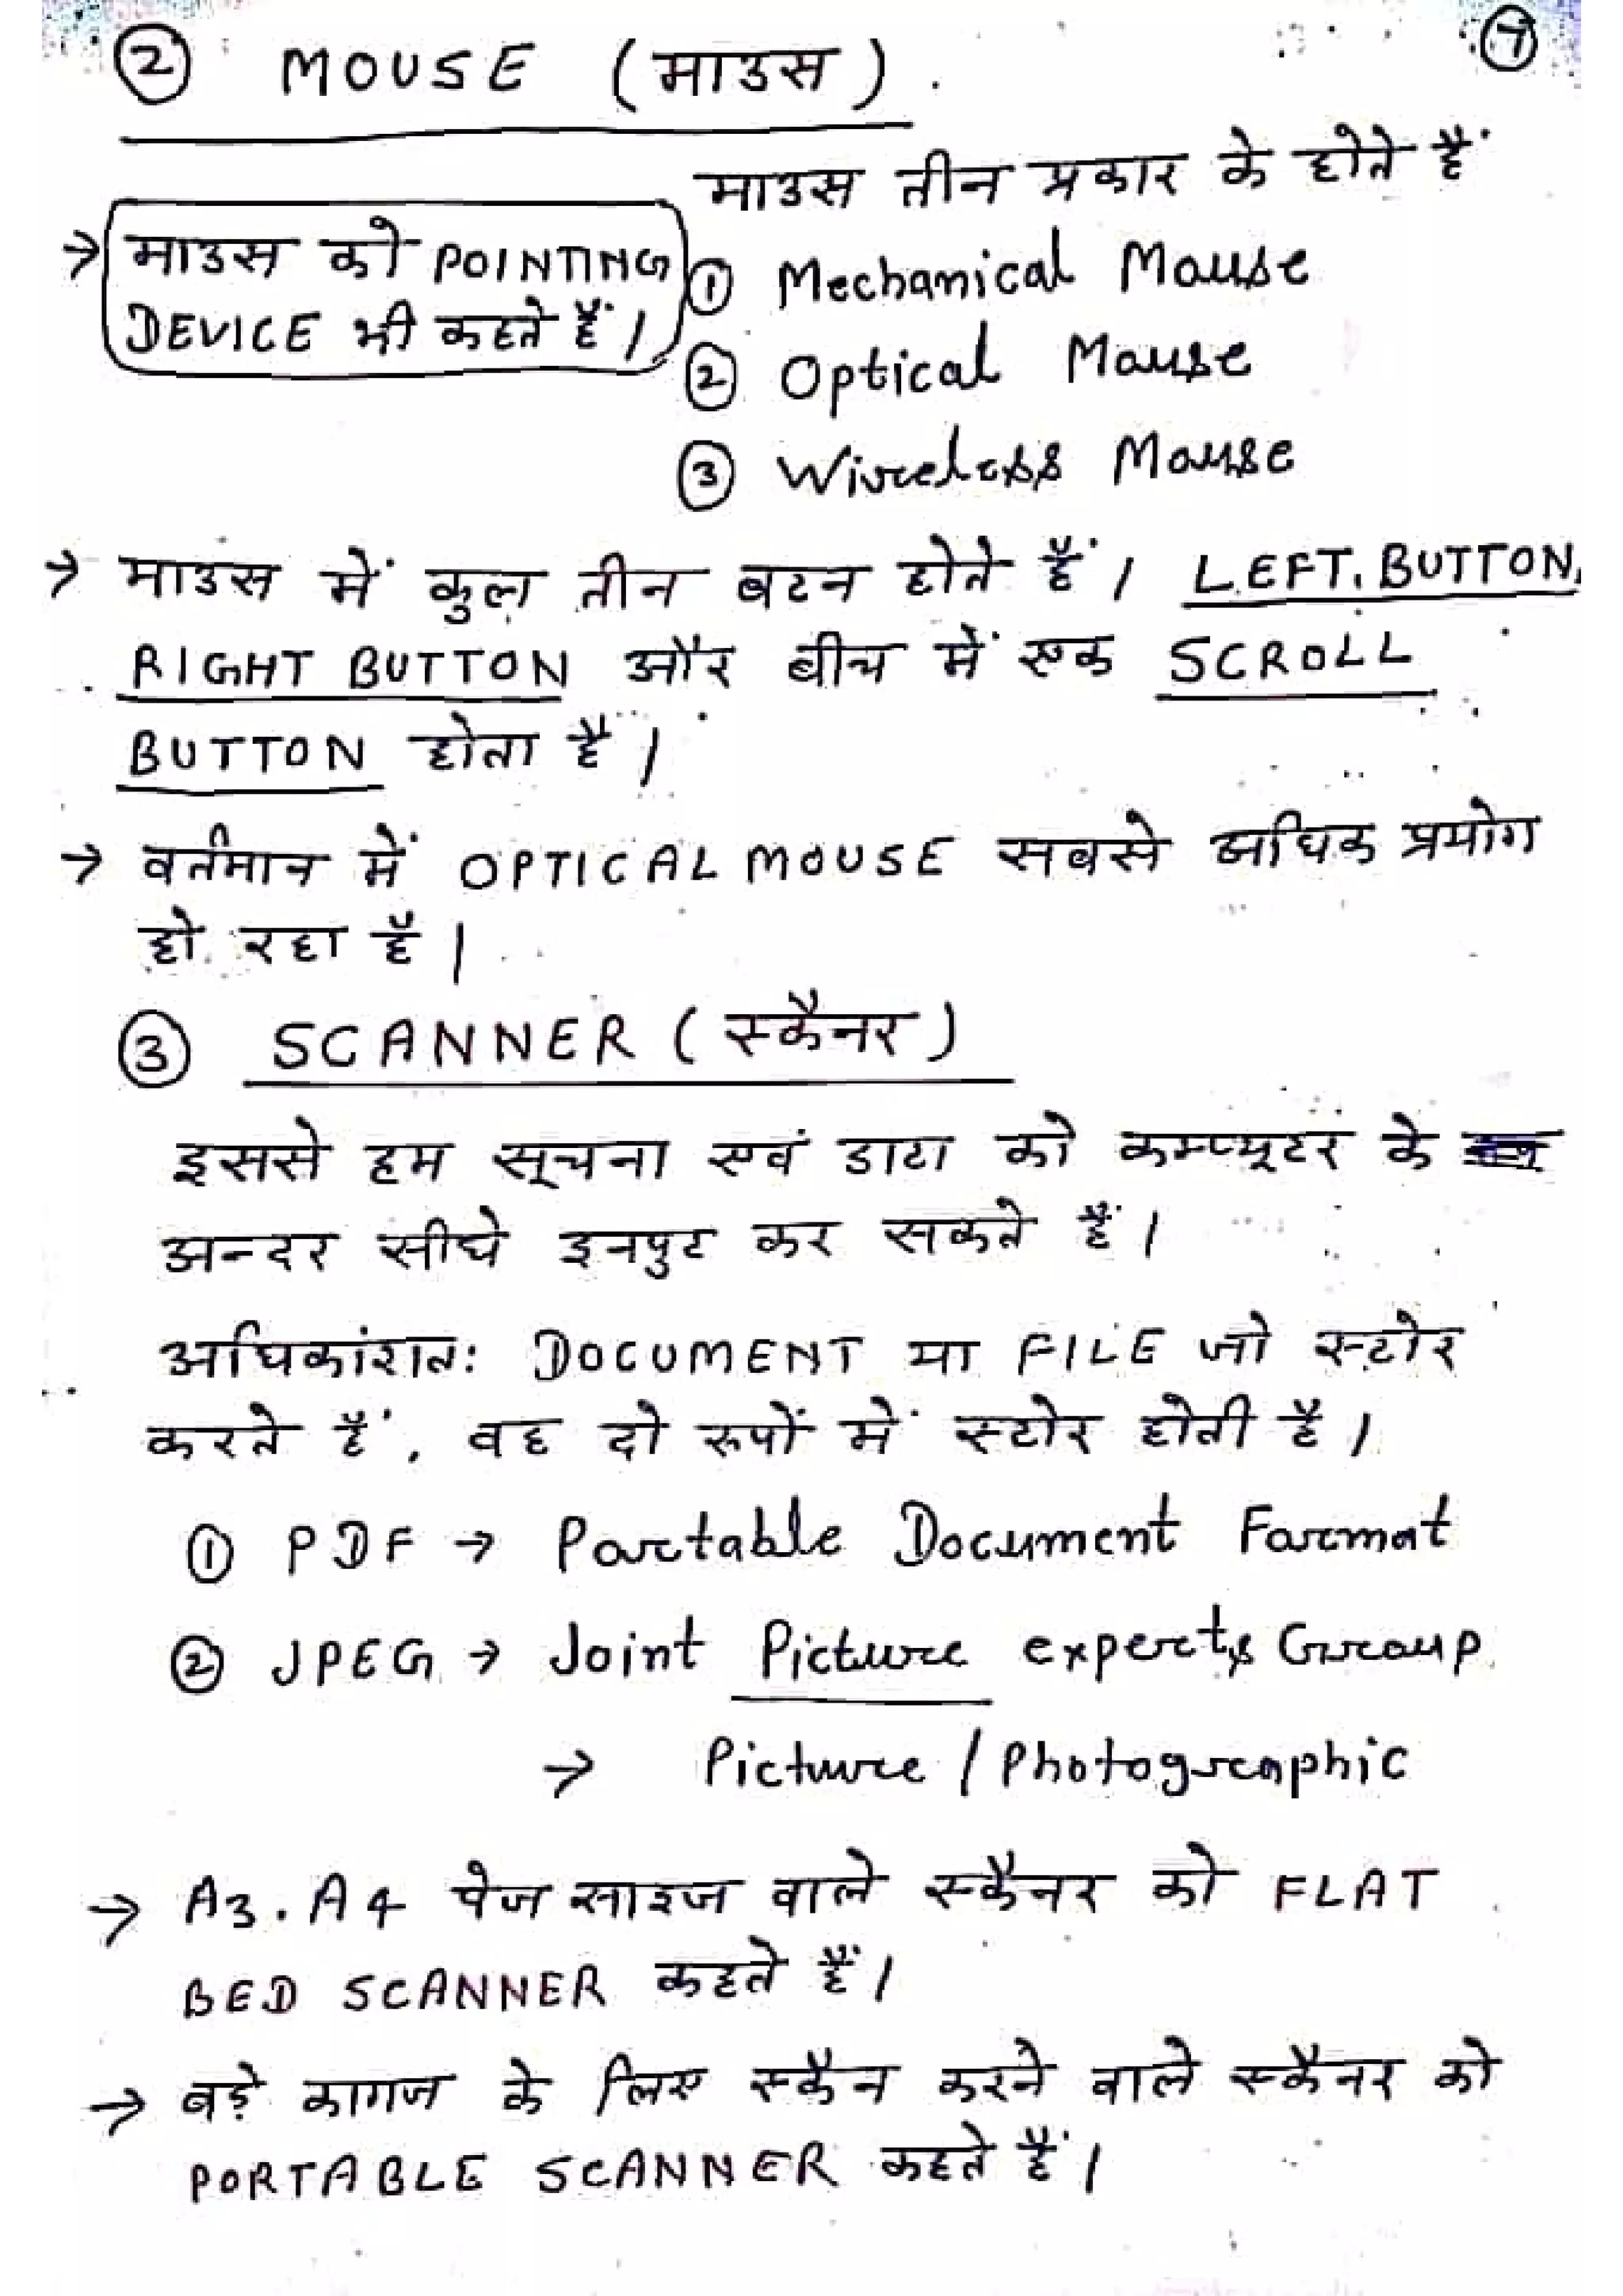 ② MOUSE (माउस). ⑦
माउस तीन प्रकार के होते हैं
→ माउस को POINTING
DEVICE भी कहते हैं।
① Mechanical Mouse
② Optical Mouse
③ Wireless Mouse
→ माउस में कुल तीन बटन होते हैं। LEFT BUTTON,
RIGHT BUTTON और बीच में एक SCROLL
BUTTON होता है।
→ वर्तमान में OPTICAL MOUSE सबसे अधिक प्रयोग
हो रहा है।
③ SCANNER (स्कैनर)
इससे हम सूचना एवं डाटा को कम्प्यूटर के
अन्दर सीधे इनपुट कर सकते हैं।
अधिकांशतः DOCUMENT या FILE जो स्टोर
करते हैं, वह दो रूपों में स्टोर होती है।
① PDF → Portable Document Format
② JPEG → Joint Picture experts Group
→ Picture / Photographic
→ A3, A4 पेज साइज वाले स्कैनर को FLAT
BED SCANNER कहते हैं।
→ बड़े कागज के लिए स्कैन करने वाले स्कैनर को
PORTABLE SCANNER कहते हैं।